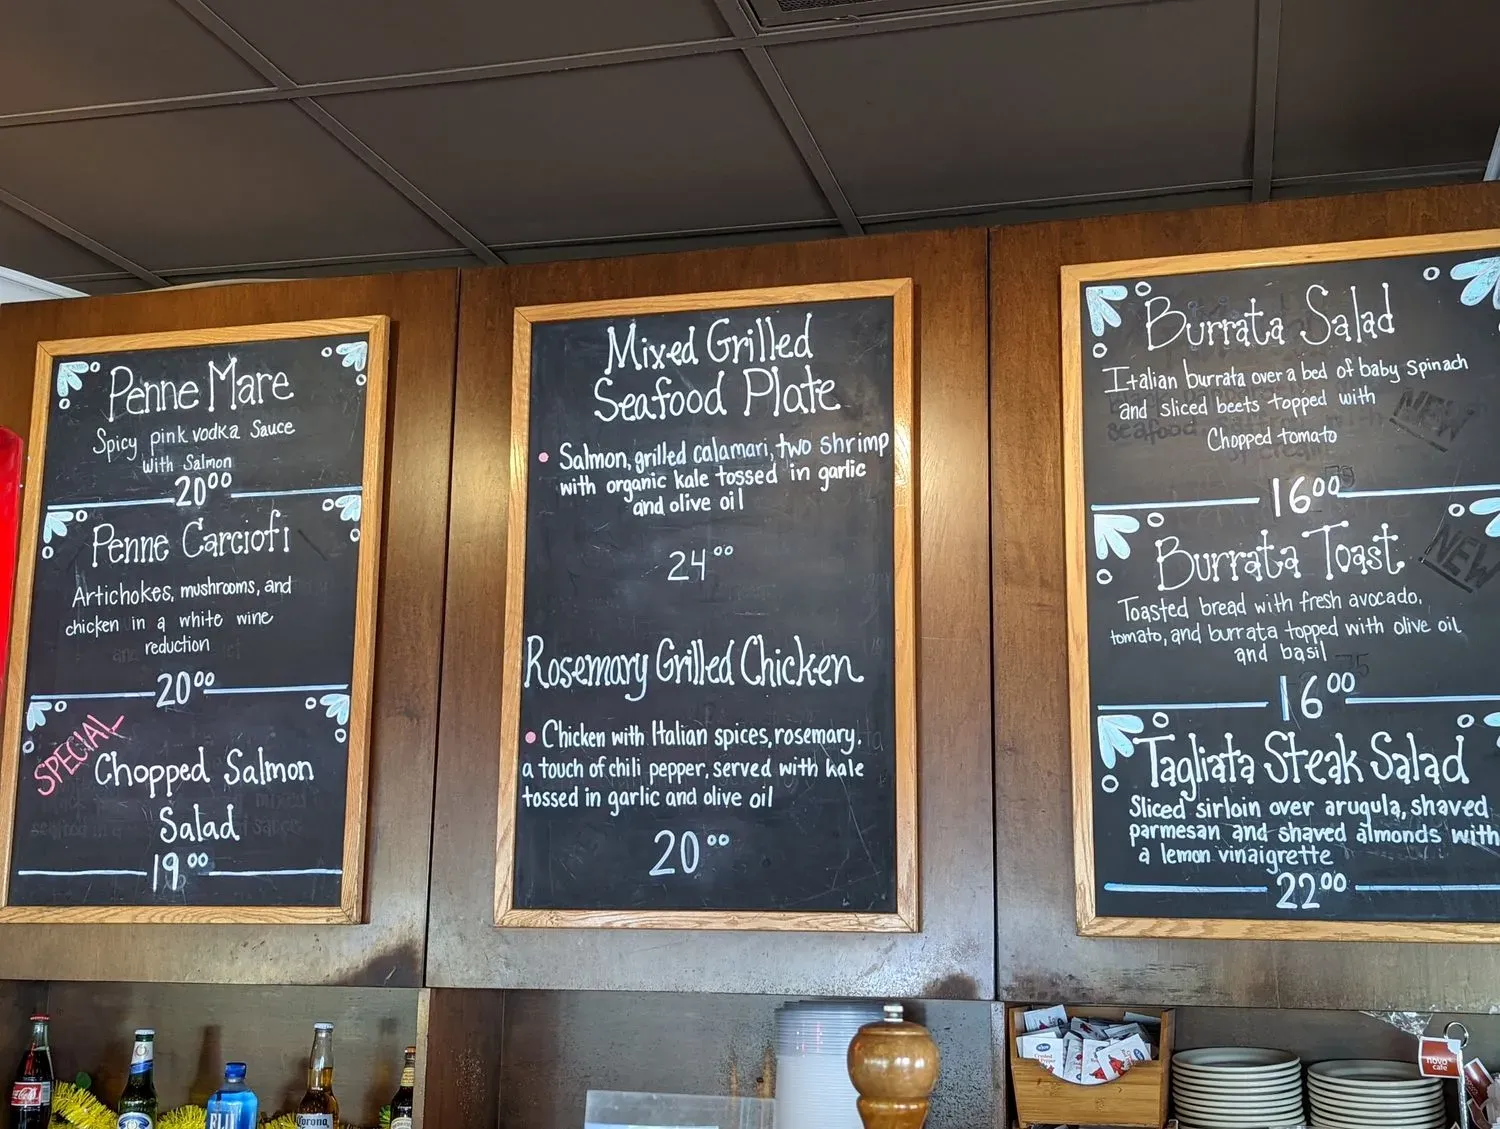 Penne Mare
Spicy pink vodka Sauce
with Salmon
20⁰⁰
Penne Carciofi
Artichokes, mushrooms, and
chicken in a white wine
reduction
20⁰⁰
SPECIAL
Chopped Salmon
Salad
19⁰⁰
Mixed Grilled
Seafood Plate
Salmon, grilled calamari, two shrimp
with organic kale tossed in garlic
and olive oil
24⁰⁰
Rosemary Grilled Chicken
Chicken with Italian spices, rosemary.
a touch of chili pepper, served with kale
tossed in garlic and olive oil
20⁰⁰
Burrata Salad
Italian burrata over a bed of baby spinach
and sliced beets topped with
NEW
Chopped tomato
16⁰⁰
Burrata Toast
NEW
Toasted bread with fresh avocado,
tomato, and burrata topped with olive oil
and basil
16⁰⁰
Tagliata Steak Salad
Sliced sirloin over arugula, shaved
parmesan and shaved almonds with
a lemon vinaigrette
22⁰⁰
Coca-Cola
Corona
nova
cafe